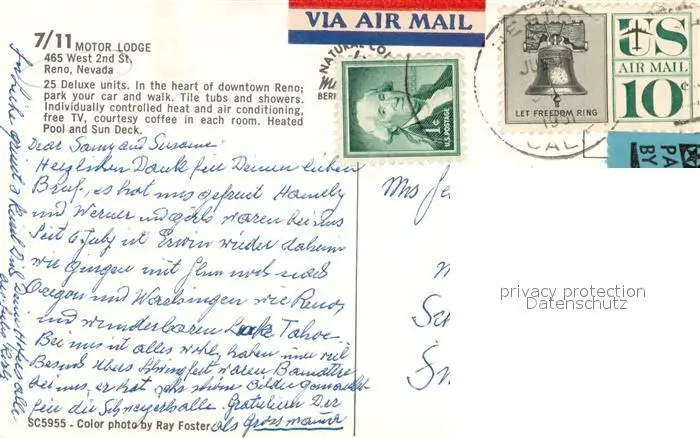 VIA AIR MAIL
7/11 MOTOR LODGE
465 West 2nd St.
Reno, Nevada
25 Deluxe units. In the heart of downtown Reno;
park your car and walk. Tile tubs and showers.
Individually controlled heat and air conditioning,
free TV, courtesy coffee in each room. Heated
Pool and Sun Deck.
NATURAL
BER
1¢
U.S. POSTAGE
LET FREEDOM RING
US
AIR MAIL
10¢
CAL
PA
BY
Dear Samy and Susanne:
Herzlichen Dank für Deinen lieben
Brief, es hat uns gefreut
und Werner und girls waren bei uns
Seit 6 July ist Erwin wieder daheim
wir gingen mit Ihm noch nach
Oregon und Washingen wie Reno,
und wunderbaren Lake Tahoe
Bei uns ist alles wohl, haben immer viel
Besuch übers Schwingfest waren
bei uns, er hat sehr schöne Bilder gemacht
für die Schweizerhalle. Gratulieren Dir
als Grossmama
SC5955 - Color photo by Ray Foster
Mrs
privacy protection
Datenschutz